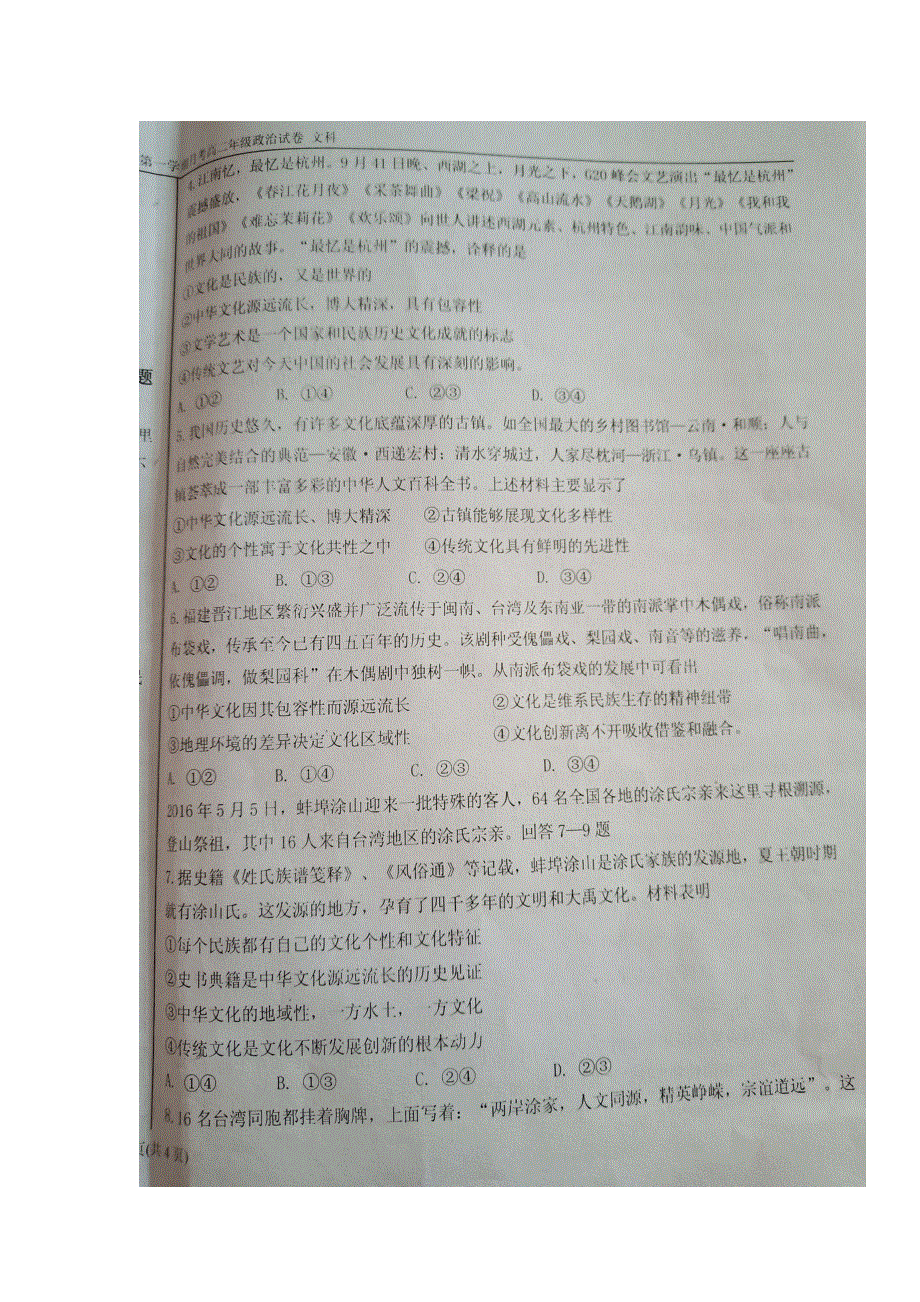 第一学期月考高二年级政治试卷 文科
4.江南忆，最忆是杭州。9月41日晚、西湖之上，月光之下，G20峰会文艺演出“最忆是杭州”
震撼盛放，《春江花月夜》《采茶舞曲》《梁祝》《高山流水》《天鹅湖》《月光》《我和我
的祖国》《难忘茉莉花》《欢乐颂》向世人讲述西湖元素、杭州特色、江南韵味、中国气派和
世界大同的故事。“最忆是杭州”的震撼，诠释的是
①文化是民族的，又是世界的
②中华文化源远流长，博大精深，具有包容性
③文学艺术是一个国家和民族历史文化成就的标志
④传统文艺对今天中国的社会发展具有深刻的影响。
A. ①② B. ①④ C. ②③ D. ③④
5.我国历史悠久，有许多文化底蕴深厚的古镇。如全国最大的乡村图书馆—云南·和顺；人与
自然完美结合的典范—安徽·西递宏村；清水穿城过，人家尽枕河—浙江·乌镇。这一座座古
镇荟萃成一部丰富多彩的中华人文百科全书。上述材料主要显示了
①中华文化源远流长、博大精深 ②古镇能够展现文化多样性
③文化的个性寓于文化共性之中 ④传统文化具有鲜明的先进性
A. ①② B. ①③ C. ②④ D. ③④
6.福建晋江地区繁衍兴盛并广泛流传于闽南、台湾及东南亚一带的南派掌中木偶戏，俗称南派
布袋戏，传承至今已有四五百年的历史。该剧种受傀儡戏、梨园戏、南音等的滋养，“唱南曲，
依傀儡调，做梨园科”在木偶剧中独树一帜。从南派布袋戏的发展中可看出
①中华文化因其包容性而源远流长 ②文化是维系民族生存的精神纽带
③地理环境的差异决定文化区域性 ④文化创新离不开吸收借鉴和融合。
A. ①② B. ①④ C. ②③ D. ③④
2016年5月5日，蚌埠涂山迎来一批特殊的客人，64名全国各地的涂氏宗亲来这里寻根溯源，
登山祭祖，其中16人来自台湾地区的涂氏宗亲。回答7—9题
7.据史籍《姓氏族谱笺释》、《风俗通》等记载，蚌埠涂山是涂氏家族的发源地，夏王朝时期
就有涂山氏。这发源的地方，孕育了四千多年的文明和大禹文化。材料表明
①每个民族都有自己的文化个性和文化特征
②史书典籍是中华文化源远流长的历史见证
③中华文化的地域性，一方水土，一方文化
④传统文化是文化不断发展创新的根本动力
A. ①④ B. ①③ C. ②④ D. ②③
8.16名台湾同胞都挂着胸牌，上面写着：“两岸涂家，人文同源，精英峥嵘，宗谊道远”。这
页(共4页)
题
里